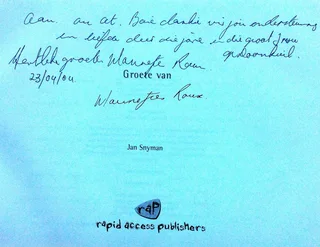 Aan. an At. Baie dankie vir jou ondersteuning
en liefde deur die jare in die groot
Hartlike groete Wannette Roux
23/04/04
Groete van
Wannetjies Roux
Jan Snyman
rap
rapid access publishers